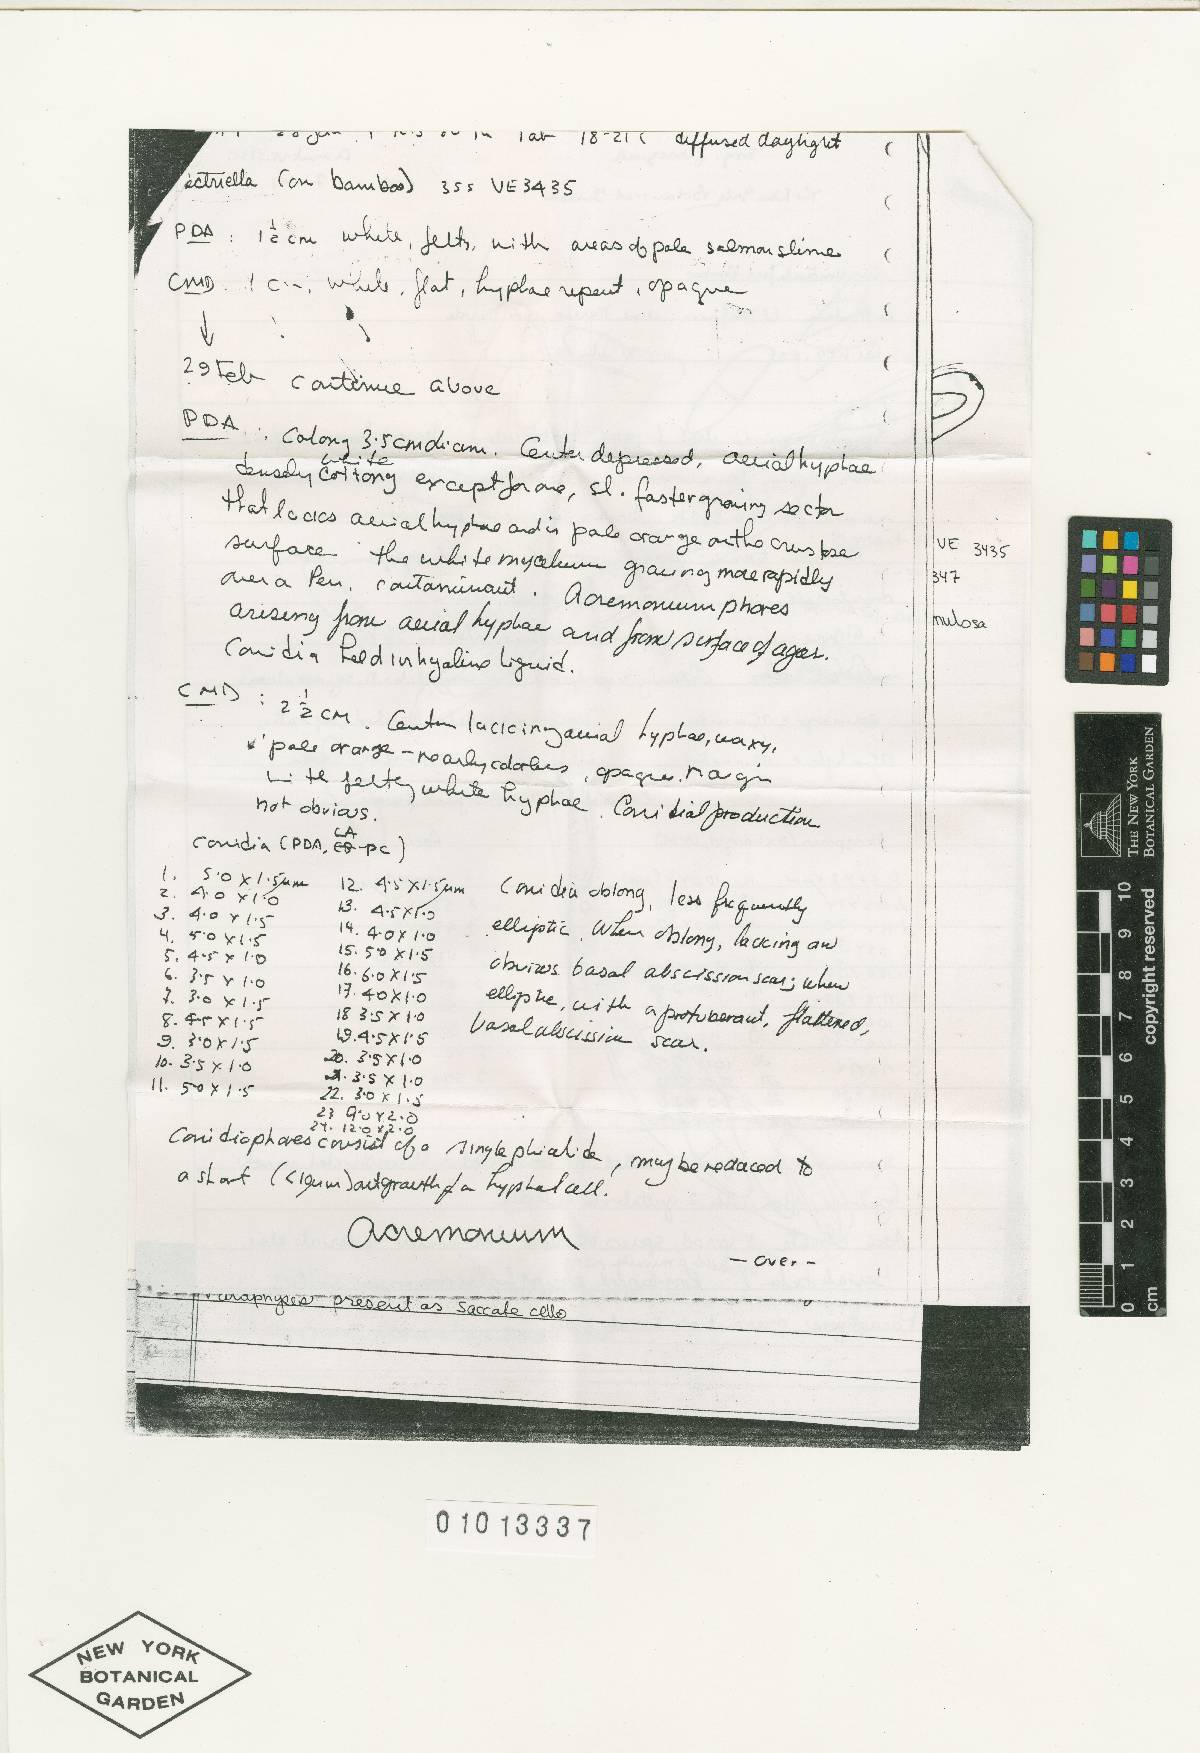 lab 18-21C diffused daylight
ectriella (on bamboo) 355 VE3435
PDA : 1 1/2 cm white, felty, with areas of pale salmon slime
CMD. 1 cm, white, flat, hyphae repent, opaque
29 Feb continue above
PDA : Colony 3.5 cm diam. Center depressed, aerial hyphae
white
densely cottony except for one, sl. faster growing sector
that lacks aerial hyphae and is pale orange on the
surface the white mycelium growing more rapidly
over a Pen. contaminant. Acremonium phores
arising from aerial hyphae and from surface of agar.
Conidia held in hyaline liquid.
CMD : 2 1/2 cm. Center lacking aerial hyphae, waxy,
pale orange - nearly colorless, opaque, margin
with felty, white hyphae. Conidial production
not obvious.
Conidia (PDA, LA PC)
1. 5.0 x 1.5 µm
2. 4.0 x 1.0
3. 4.0 x 1.5
4. 5.0 x 1.5
5. 4.5 x 1.0
6. 3.5 x 1.0
7. 3.0 x 1.5
8. 4.5 x 1.5
9. 3.0 x 1.5
10. 3.5 x 1.0
11. 5.0 x 1.5
12. 4.5 x 1.5 µm
13. 4.5 x 1.0
14. 4.0 x 1.0
15. 5.0 x 1.5
16. 6.0 x 1.5
17. 4.0 x 1.0
18 3.5 x 1.0
19. 4.5 x 1.5
20. 3.5 x 1.0
21. 3.5 x 1.0
22. 3.0 x 1.5
23 9.0 x 2.0
24. 12.0 x 2.0
Conidia oblong, less frequently
elliptic. When oblong, lacking an
obvious basal abscission scar; when
elliptic, with a protuberant, flattened,
basal abscission scar.
Conidiophores consist of a single phialide, may be reduced to
a short (<10µm) outgrowth of a hyphal cell.
Acremonium
- over -
paraphyses present as saccate cells
VE 3435
347
nulosa
THE NEW YORK
BOTANICAL GARDEN
copyright reserved
0 1 2 3 4 5 6 7 8 9 10
cm
01013337
NEW YORK
BOTANICAL
GARDEN